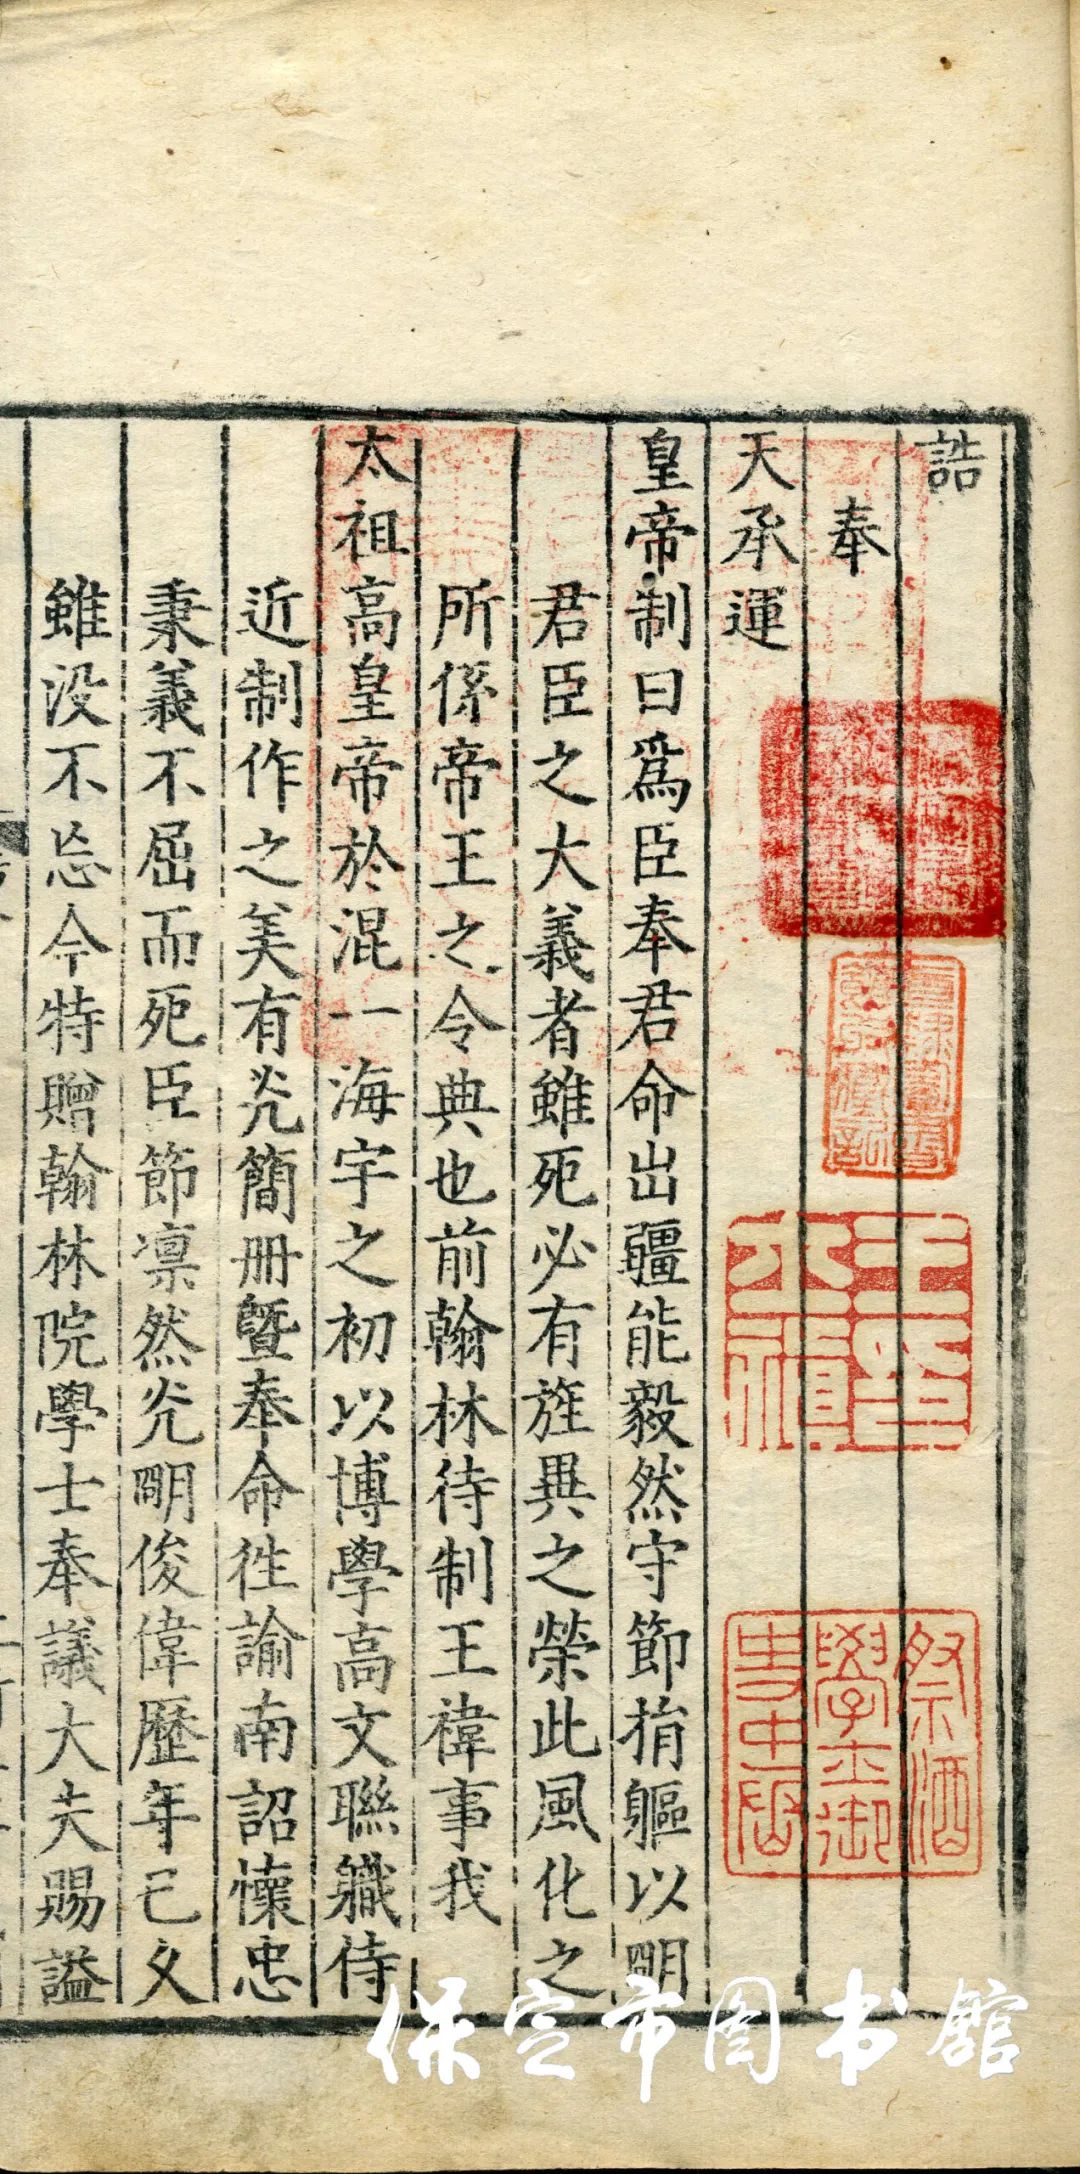 誥
奉
天承運
皇帝制曰爲臣奉君命出疆能毅然守節捐軀以明
君臣之大義者雖死必有旌異之榮此風化之
所係帝王之令典也前翰林待制王禕事我
太祖高皇帝於混一海宇之初以博學高文聯職侍
近制作之美有光簡冊曁奉命徃諭南詔懷忠
秉義不屈而死臣節凛然光明俊偉歷年已久
雖没不忘今特贈翰林院學士奉議大夫賜謚
祭酒
學士御
史中丞
保定市图书馆